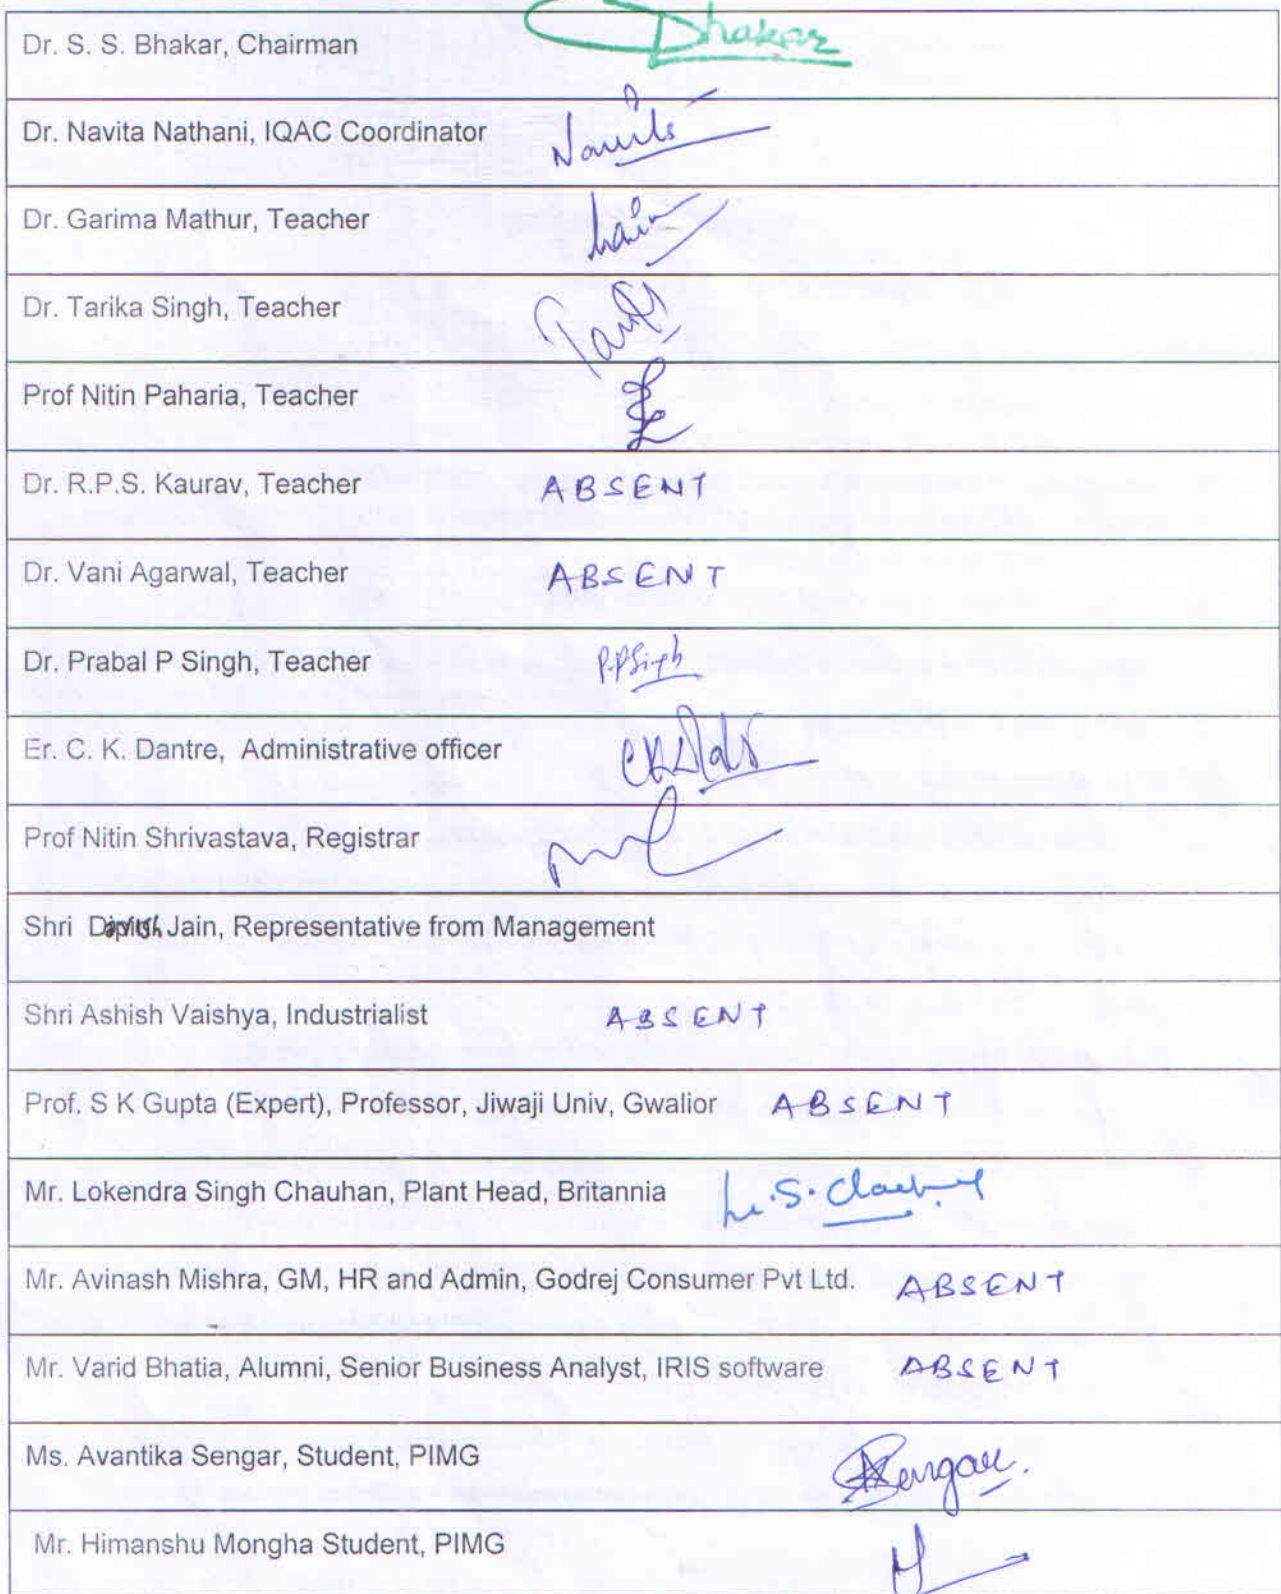 Dr. S. S. Bhakar, Chairman Bhakar
Dr. Navita Nathani, IQAC Coordinator Navita
Dr. Garima Mathur, Teacher
Dr. Tarika Singh, Teacher
Prof Nitin Paharia, Teacher
Dr. R.P.S. Kaurav, Teacher ABSENT
Dr. Vani Agarwal, Teacher ABSENT
Dr. Prabal P Singh, Teacher P.P.Singh
Er. C. K. Dantre, Administrative officer
Prof Nitin Shrivastava, Registrar
Shri Jain, Representative from Management
Shri Ashish Vaishya, Industrialist ABSENT
Prof. S K Gupta (Expert), Professor, Jiwaji Univ, Gwalior ABSENT
Mr. Lokendra Singh Chauhan, Plant Head, Britannia L.S.
Mr. Avinash Mishra, GM, HR and Admin, Godrej Consumer Pvt Ltd. ABSENT
Mr. Varid Bhatia, Alumni, Senior Business Analyst, IRIS software ABSENT
Ms. Avantika Sengar, Student, PIMG Sengar.
Mr. Himanshu Mongha Student, PIMG